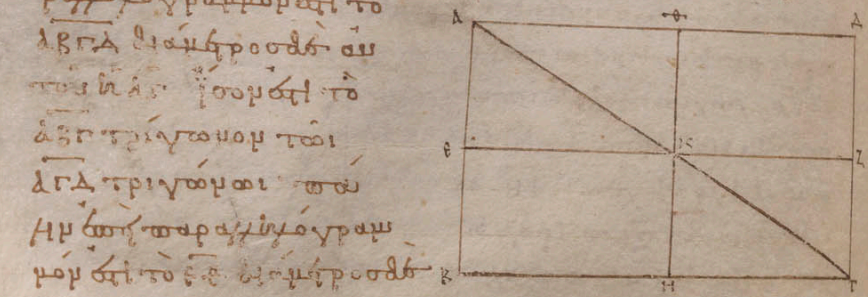 γραμμόν ἐστι τὸ
ΑΒΓΔ διάμετρος δὲ αὐ
τοῦ ἡ ΑΓ ἴσον ἐστὶ τὸ
ΑΒΓ τρίγωνον τῶι
ΑΓΔ τριγώνωι πά
λιν ἐπεὶ παραλληλόγραμ
μόν ἐστι τὸ διάμετρος δὲ
Α Θ Δ
Ε Κ Ζ
Β Η Γ